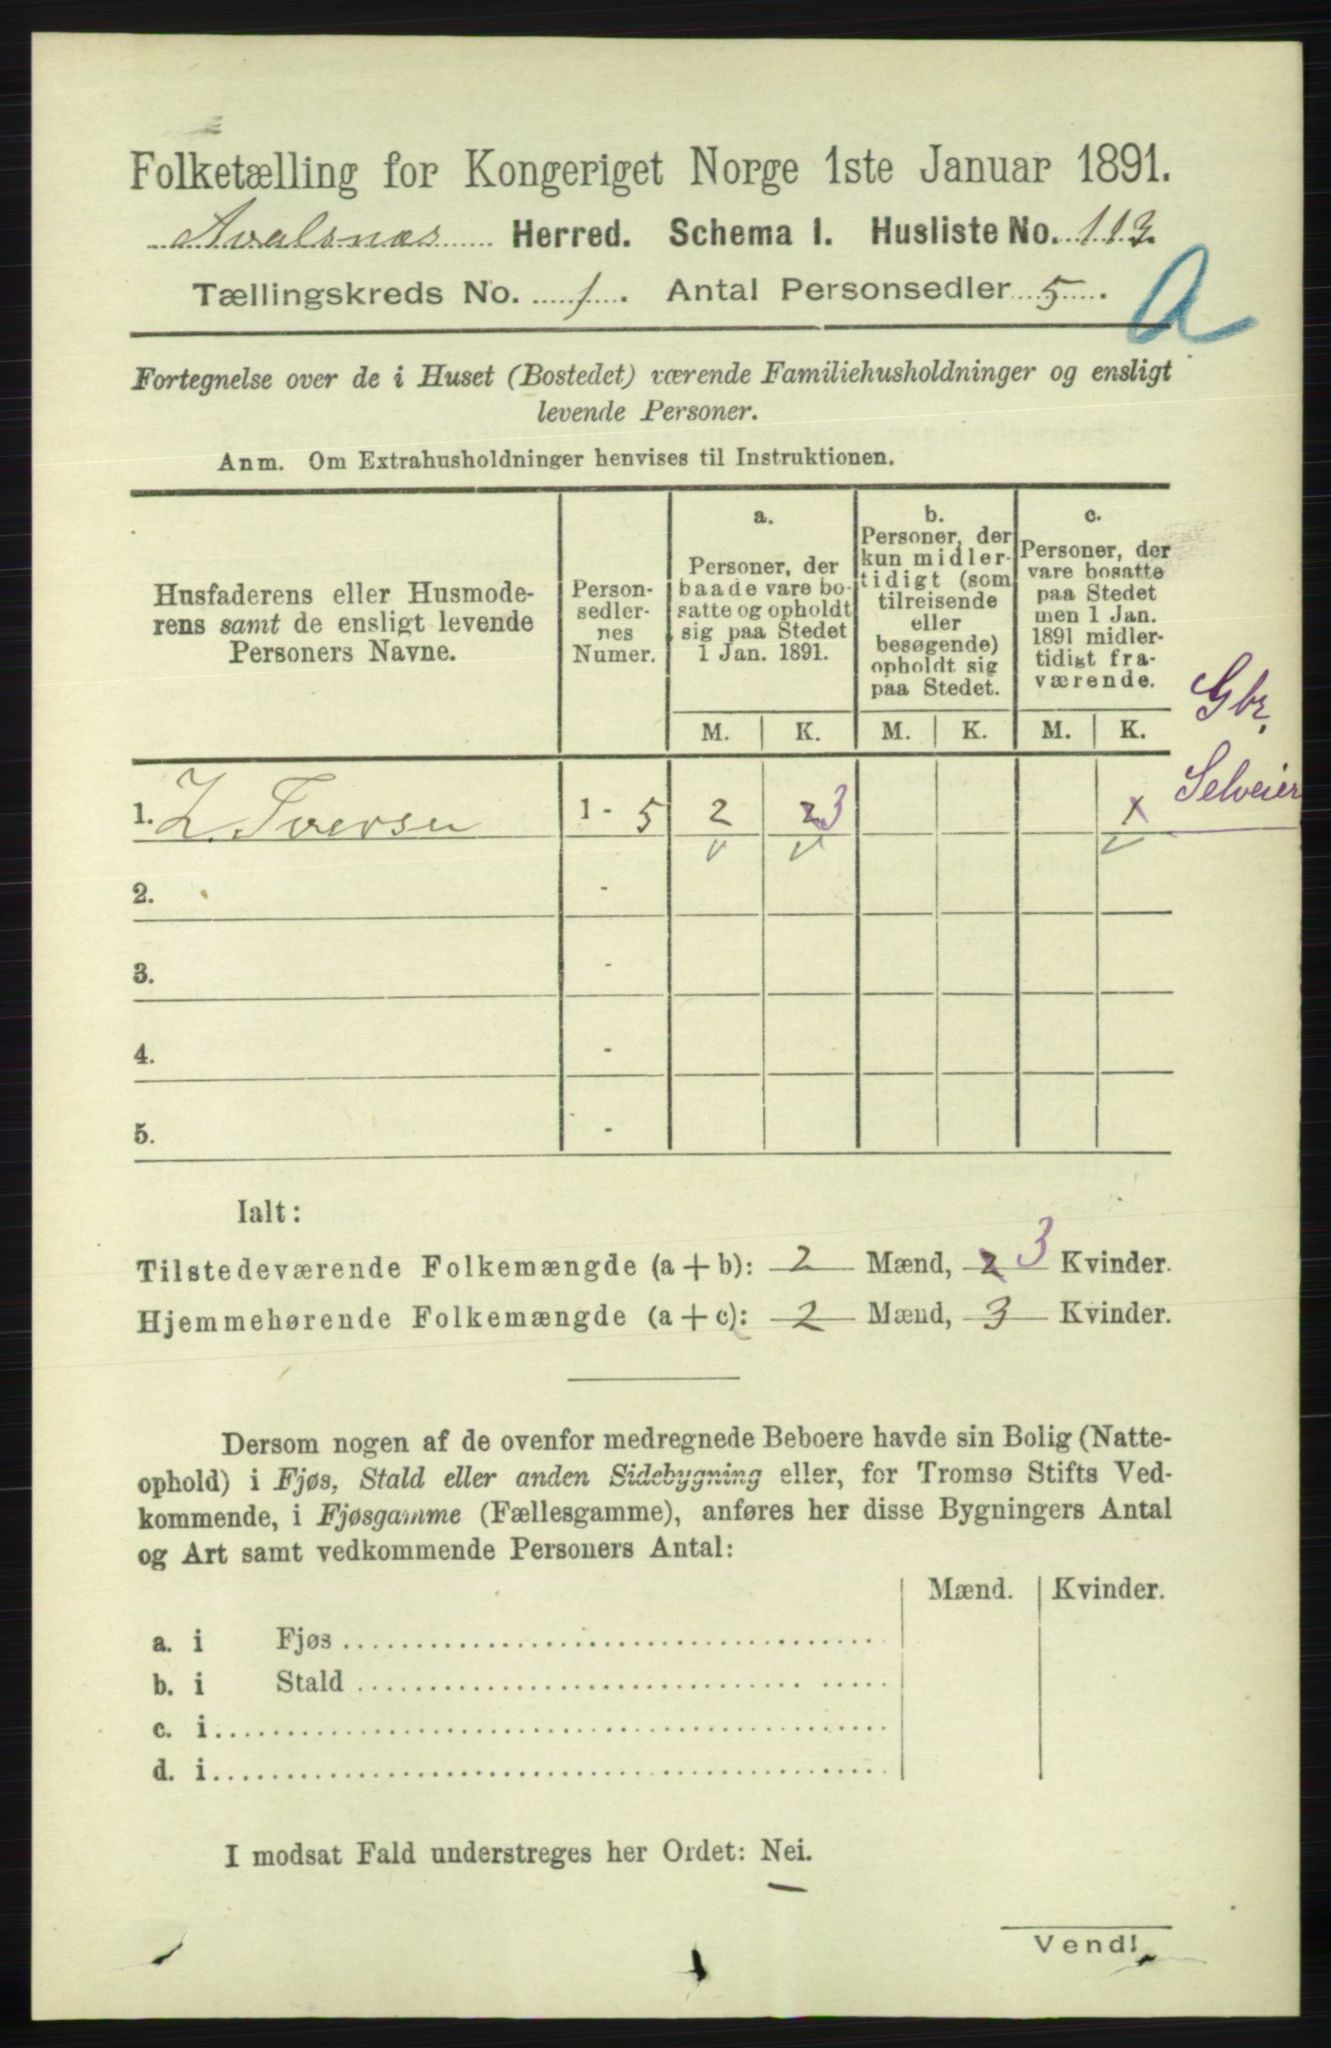 Folketælling for Kongeriget Norge 1ste Januar 1891.
Avalsnæs Herred. Schema I. Husliste No. 113.
Tællingskreds No. 1. Antal Personsedler 5.
A
Fortegnelse over de i Huset (Bostedet) værende Familiehusholdninger og ensligt
levende Personer.
Anm. Om Extrahusholdninger henvises til Instruktionen.
Husfaderens eller Husmode-
rens samt de ensligt levende
Personers Navne.
Person-
sedler-
nes
Numer.
a.
Personer, der
baade vare bo-
satte og opholdt
sig paa Stedet
1 Jan. 1891.
b.
Personer, der
kun midler-
tidigt (som
tilreisende
eller
besøgende)
opholdt sig
paa Stedet.
c.
Personer, der
vare bosatte
paa Stedet
men 1 Jan.
1891 midler-
tidigt fra-
værende.
M. K. M. K. M. K.
Gbr,
Selveier
1. Z. Iversen 1 - 5 2 2 3 x
2. -
3. -
4. -
5. -
Ialt:
Tilstedeværende Folkemængde (a + b): 2 Mænd, 2 3 Kvinder.
Hjemmehørende Folkemængde (a + c): 2 Mænd, 3 Kvinder.
Dersom nogen af de ovenfor medregnede Beboere havde sin Bolig (Natte-
ophold) i Fjøs, Stald eller anden Sidebygning eller, for Tromsø Stifts Ved-
kommende, i Fjøsgamme (Fællesgamme), anføres her disse Bygningers Antal
og Art samt vedkommende Personers Antal:
Mænd. Kvinder.
a. i Fjøs
b. i Stald
c. i
d. i
I modsat Fald understreges her Ordet: Nei.
Vend!